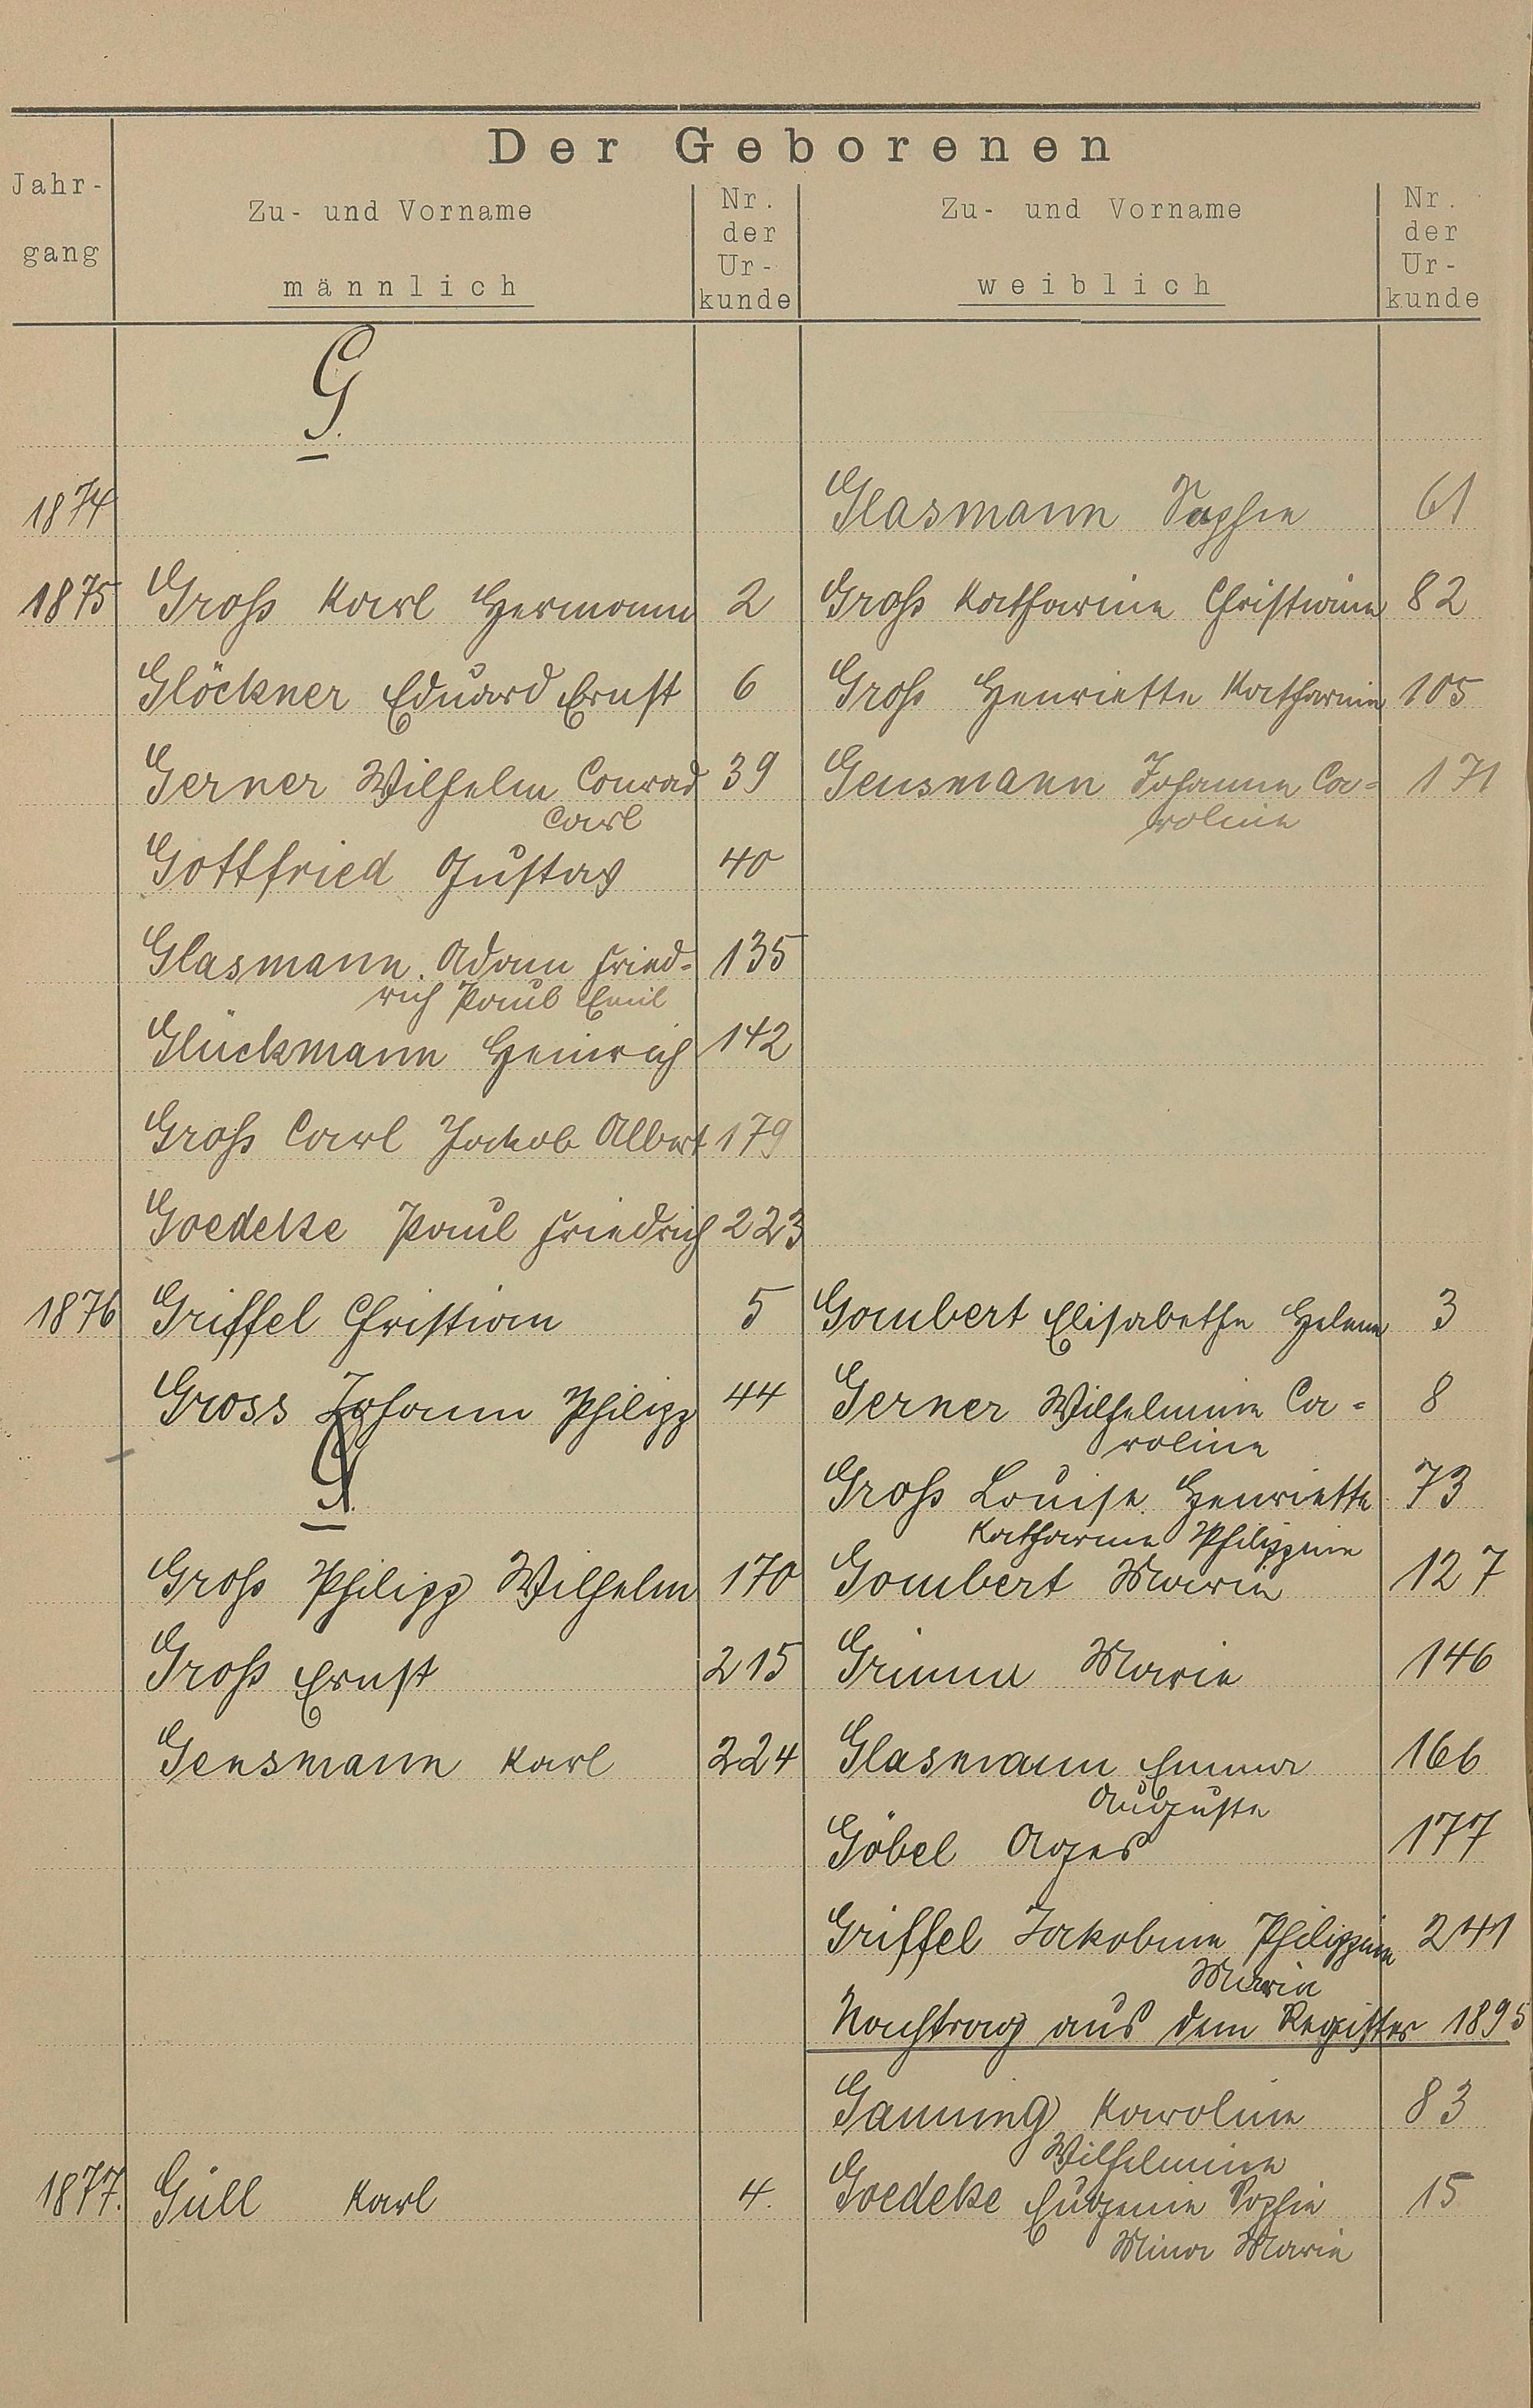 Der Geborenen
Jahr-
gang
Zu- und Vorname
männlich
Nr.
der
Ur-
kunde
Zu- und Vorname
weiblich
Nr.
der
Ur-
kunde
G.
1874 Glasmann Sophie 61
1875 Groß Karl Hermann 2 Groß Katharine Christiane 82
Glöckner Eduard Ernst 6 Groß Henriette Katharine 105
Gerner Wilhelm Conrad 39 Gensmann Johanna Ca- 171
Carl roline
Gottfried Gustav 40
Glasmann Adam Fried- 135
rich Paul Emil
Glückmann Heinrich 142
Groß Carl Jakob Albert 179
Goedeke Paul Friedrich 223
1876 Griffel Christian 5 Gombert Elisabethe Helene 3
Gross Johann Philipp 44 Gerner Wilhelmine Ca- 8
roline
G. Groß Louise Henriette 73
Katharine Philippine
Groß Philipp Wilhelm 170 Gombert Maria 127
Groß Ernst 215 Grimm Marie 146
Gensmann Karl 224 Glasmann Emma 166
Auguste
Göbel Agnes 177
Griffel Jakobine Philippine 241
Maria
Nachtrag aus dem Register 1895
Ganning Karoline 83
Wilhelmine
1877. Güll Karl 4. Goedeke Eugenie Sophie 15
Mina Marie